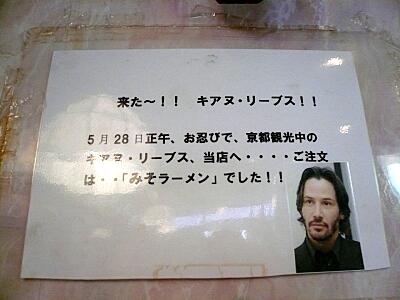 来た～！！　キアヌ・リーブス！！
５月２８日正午、お忍びで、京都観光中の
キアヌ・リーブス、当店へ・・・・ご注文
は・・「みそラーメン」でした！！